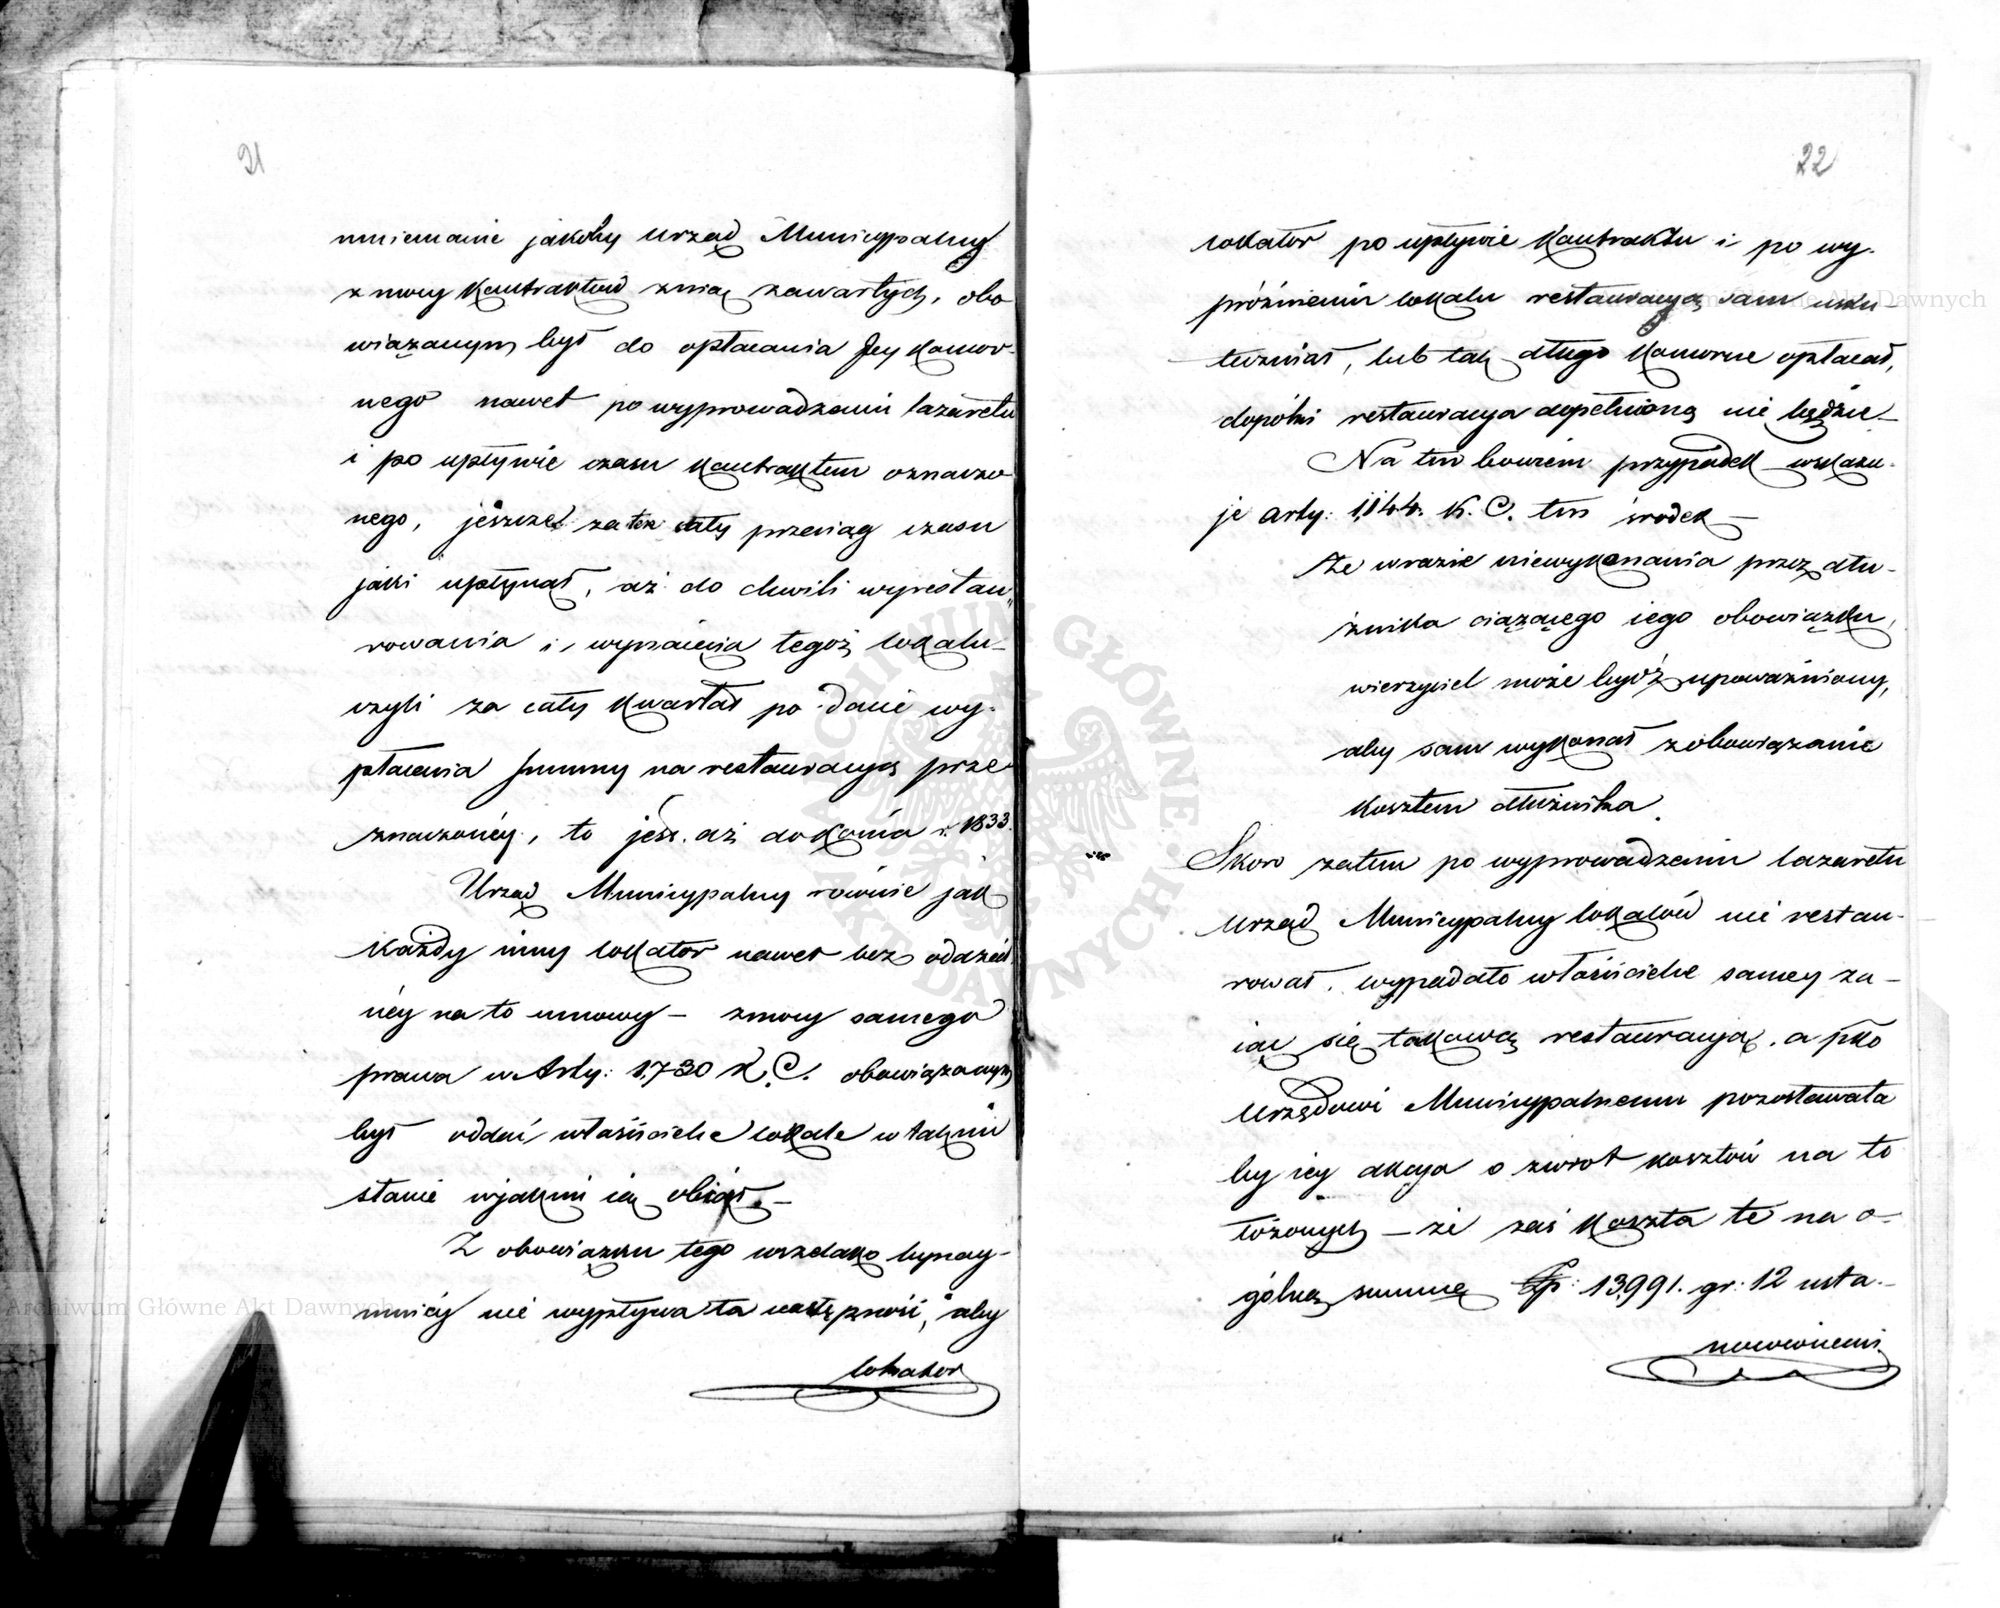 21
mniemanie jakoby Urząd Municypalny
z mocy Kontraktów z nią zawartych, obo
wiązanym był do opłacania Jey Komor-
nego nawet po wyprowadzeniu lazaretu
i po upływie czasu Kontraktem oznaczo
nego, jeszcze za ten cały przeciąg czasu
jaki upłynął, aż do chwili wyrestau„
rowania i wypróżnienia tegoż lokalu
czyli za cały Kwartał po dacie wy-
płacenia Summy na restauracyą prze
znaczoney, to jest aż do końca r. 1833.
Urząd Municypalny równie jak
Każdy inny lokator nawet bez oddziel
néy na to umowy – z mocy samego
prawa w Arty: 1,730 K. C. obowiązanym
był oddać właścicielce lokale w takim
stanie w jakim ie obiął. –
Z obowiązku tego wszelako bynay-
mniéy nie wypływa ta następność, aby
lokator
22
lokator po upływie Kontraktu i po wy-
próżnieniu lokalu restauracyą sam usku-
teczniał, lub tak długo Komorne opłacał,
dopóki restauracya dopełnioną nie będzie –
Na ten bowiem przypadek wskazu-
je Arty: 1,144. K. C. ten środek –
Że w razie niewykonania przez dłu-
żnika ciążącego iego obowiązku,
wierzyciel może bydź upoważniony,
aby sam wykonał zobowiązanie
kosztem dłużnika.
Skoro zatem po wyprowadzeniu lazaretu
Urząd Municypalny lokalów nie restau-
rował, wypadało właścicielce samey za-
iąć się takową restauracyą, a pko
Urzędowi Municypalnemu pozostawała
by iey akcya o zwrot kosztów na to
łożonych – że zaś koszta te na o-
gólną summę Złp: 13,991. gr: 12 usta-
nowionemi
Archiwum Główne Akt Dawnych
ARCHIWUM GŁÓWNE AKT DAWNYCH